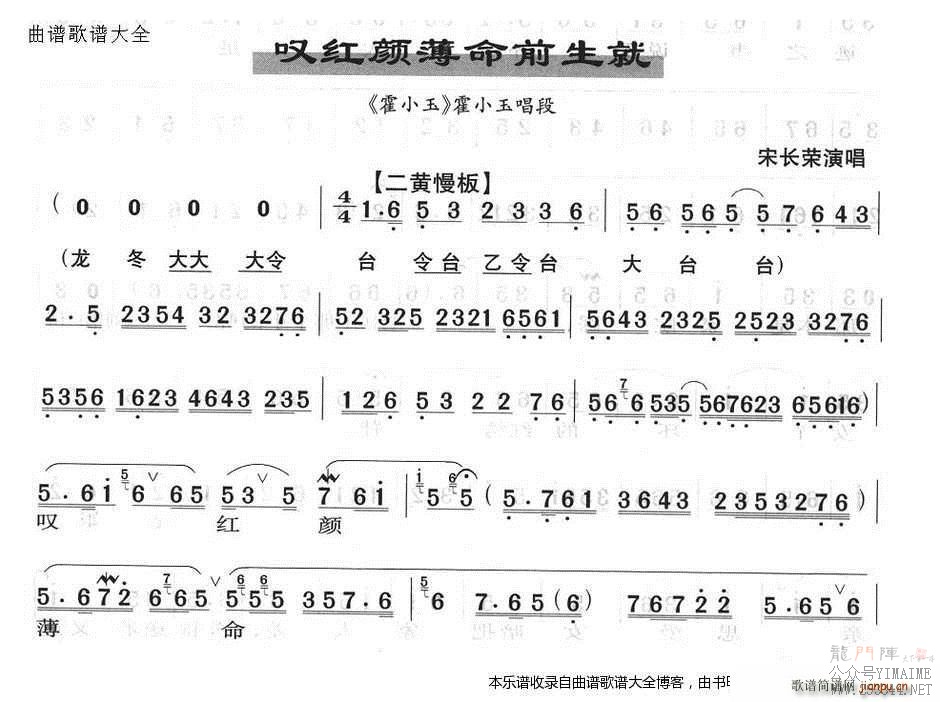 曲谱歌谱大全
叹红颜薄命前生就
《霍小玉》霍小玉唱段
宋长荣演唱
【二黄慢板】
( 0 0 0 0 | 4/4 1·6 5 3 2 3 3 6 | 56 565 57 6 43 |
(龙 冬 大大 大令 台 令台 乙令台 大 台 台)
2·5 2354 32 3276 | 52 325 2321 6561 | 5643 2325 2523 3276 |
5356 1623 4643 235 | 126 53 22 76 | 56 7 6 535 567623 65616) |
5·6i 5 6 65 53 5 7 6i | i 5 6 5 (5·761 3643 2353276) |
叹 红 颜
5·672 7 665 6 5 6 55 357·6 | 5 6 7·65(6) 7622 5·656 |
薄 命
龍門陣
公众号YIMAIME
本乐谱收录自曲谱歌谱大全博客，由书
歌谱简谱网
jianpu.cn